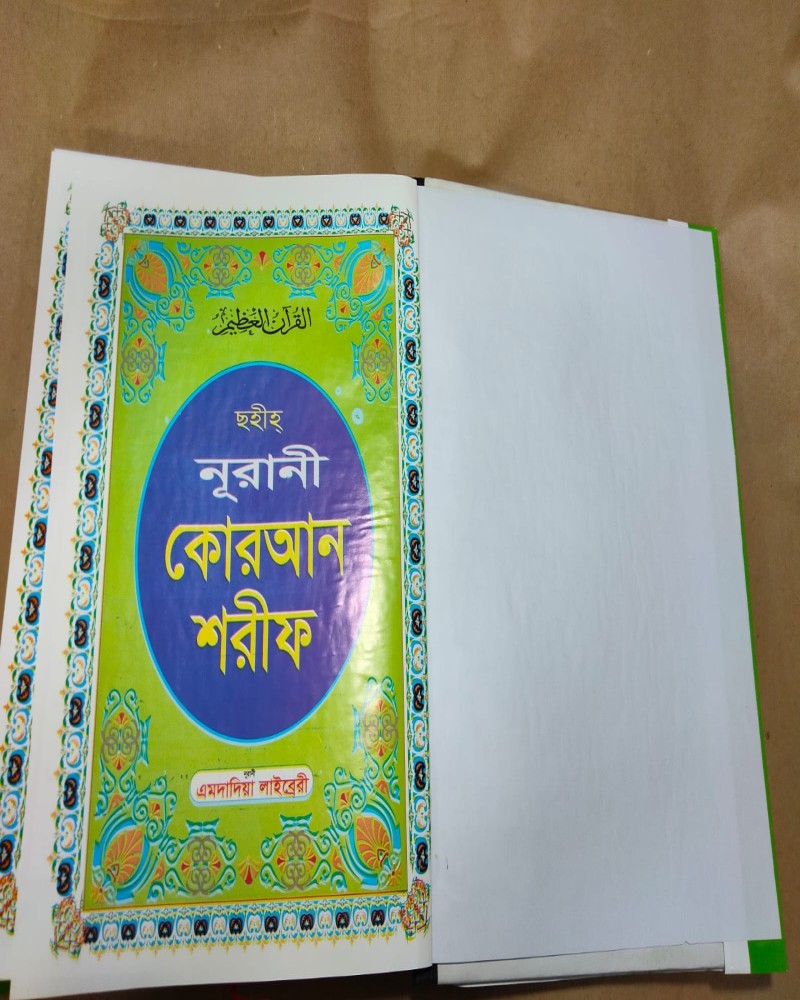 القرآن العظيم
ছহীহ্
নূরানী
কোরআন
শরীফ
নূরানী
এমদাদিয়া লাইব্রেরী